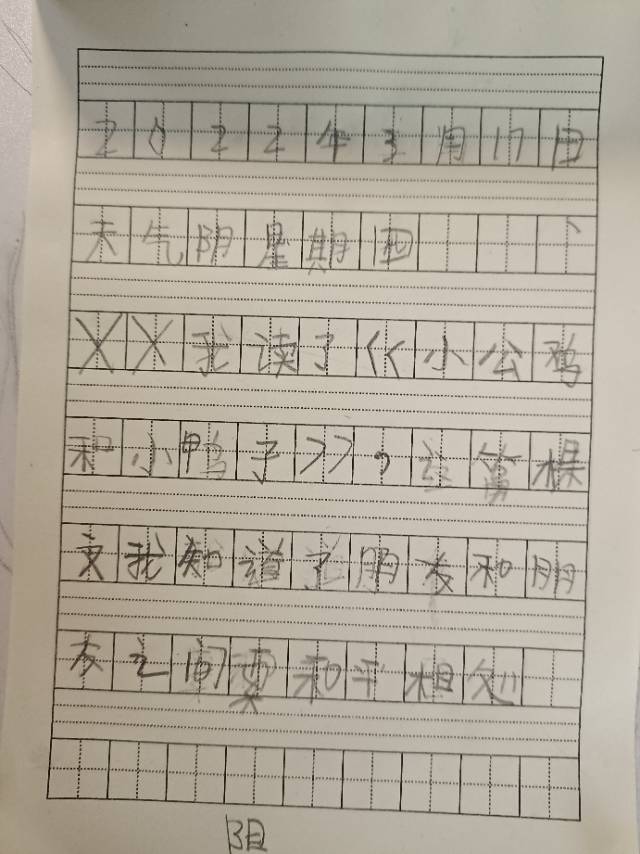 2022年3月17日
天气阴星期四、
XX我读了《小公鸡
和小鸭子》，这篇课
文我知道了朋友和朋
友之间要和平相处
阻